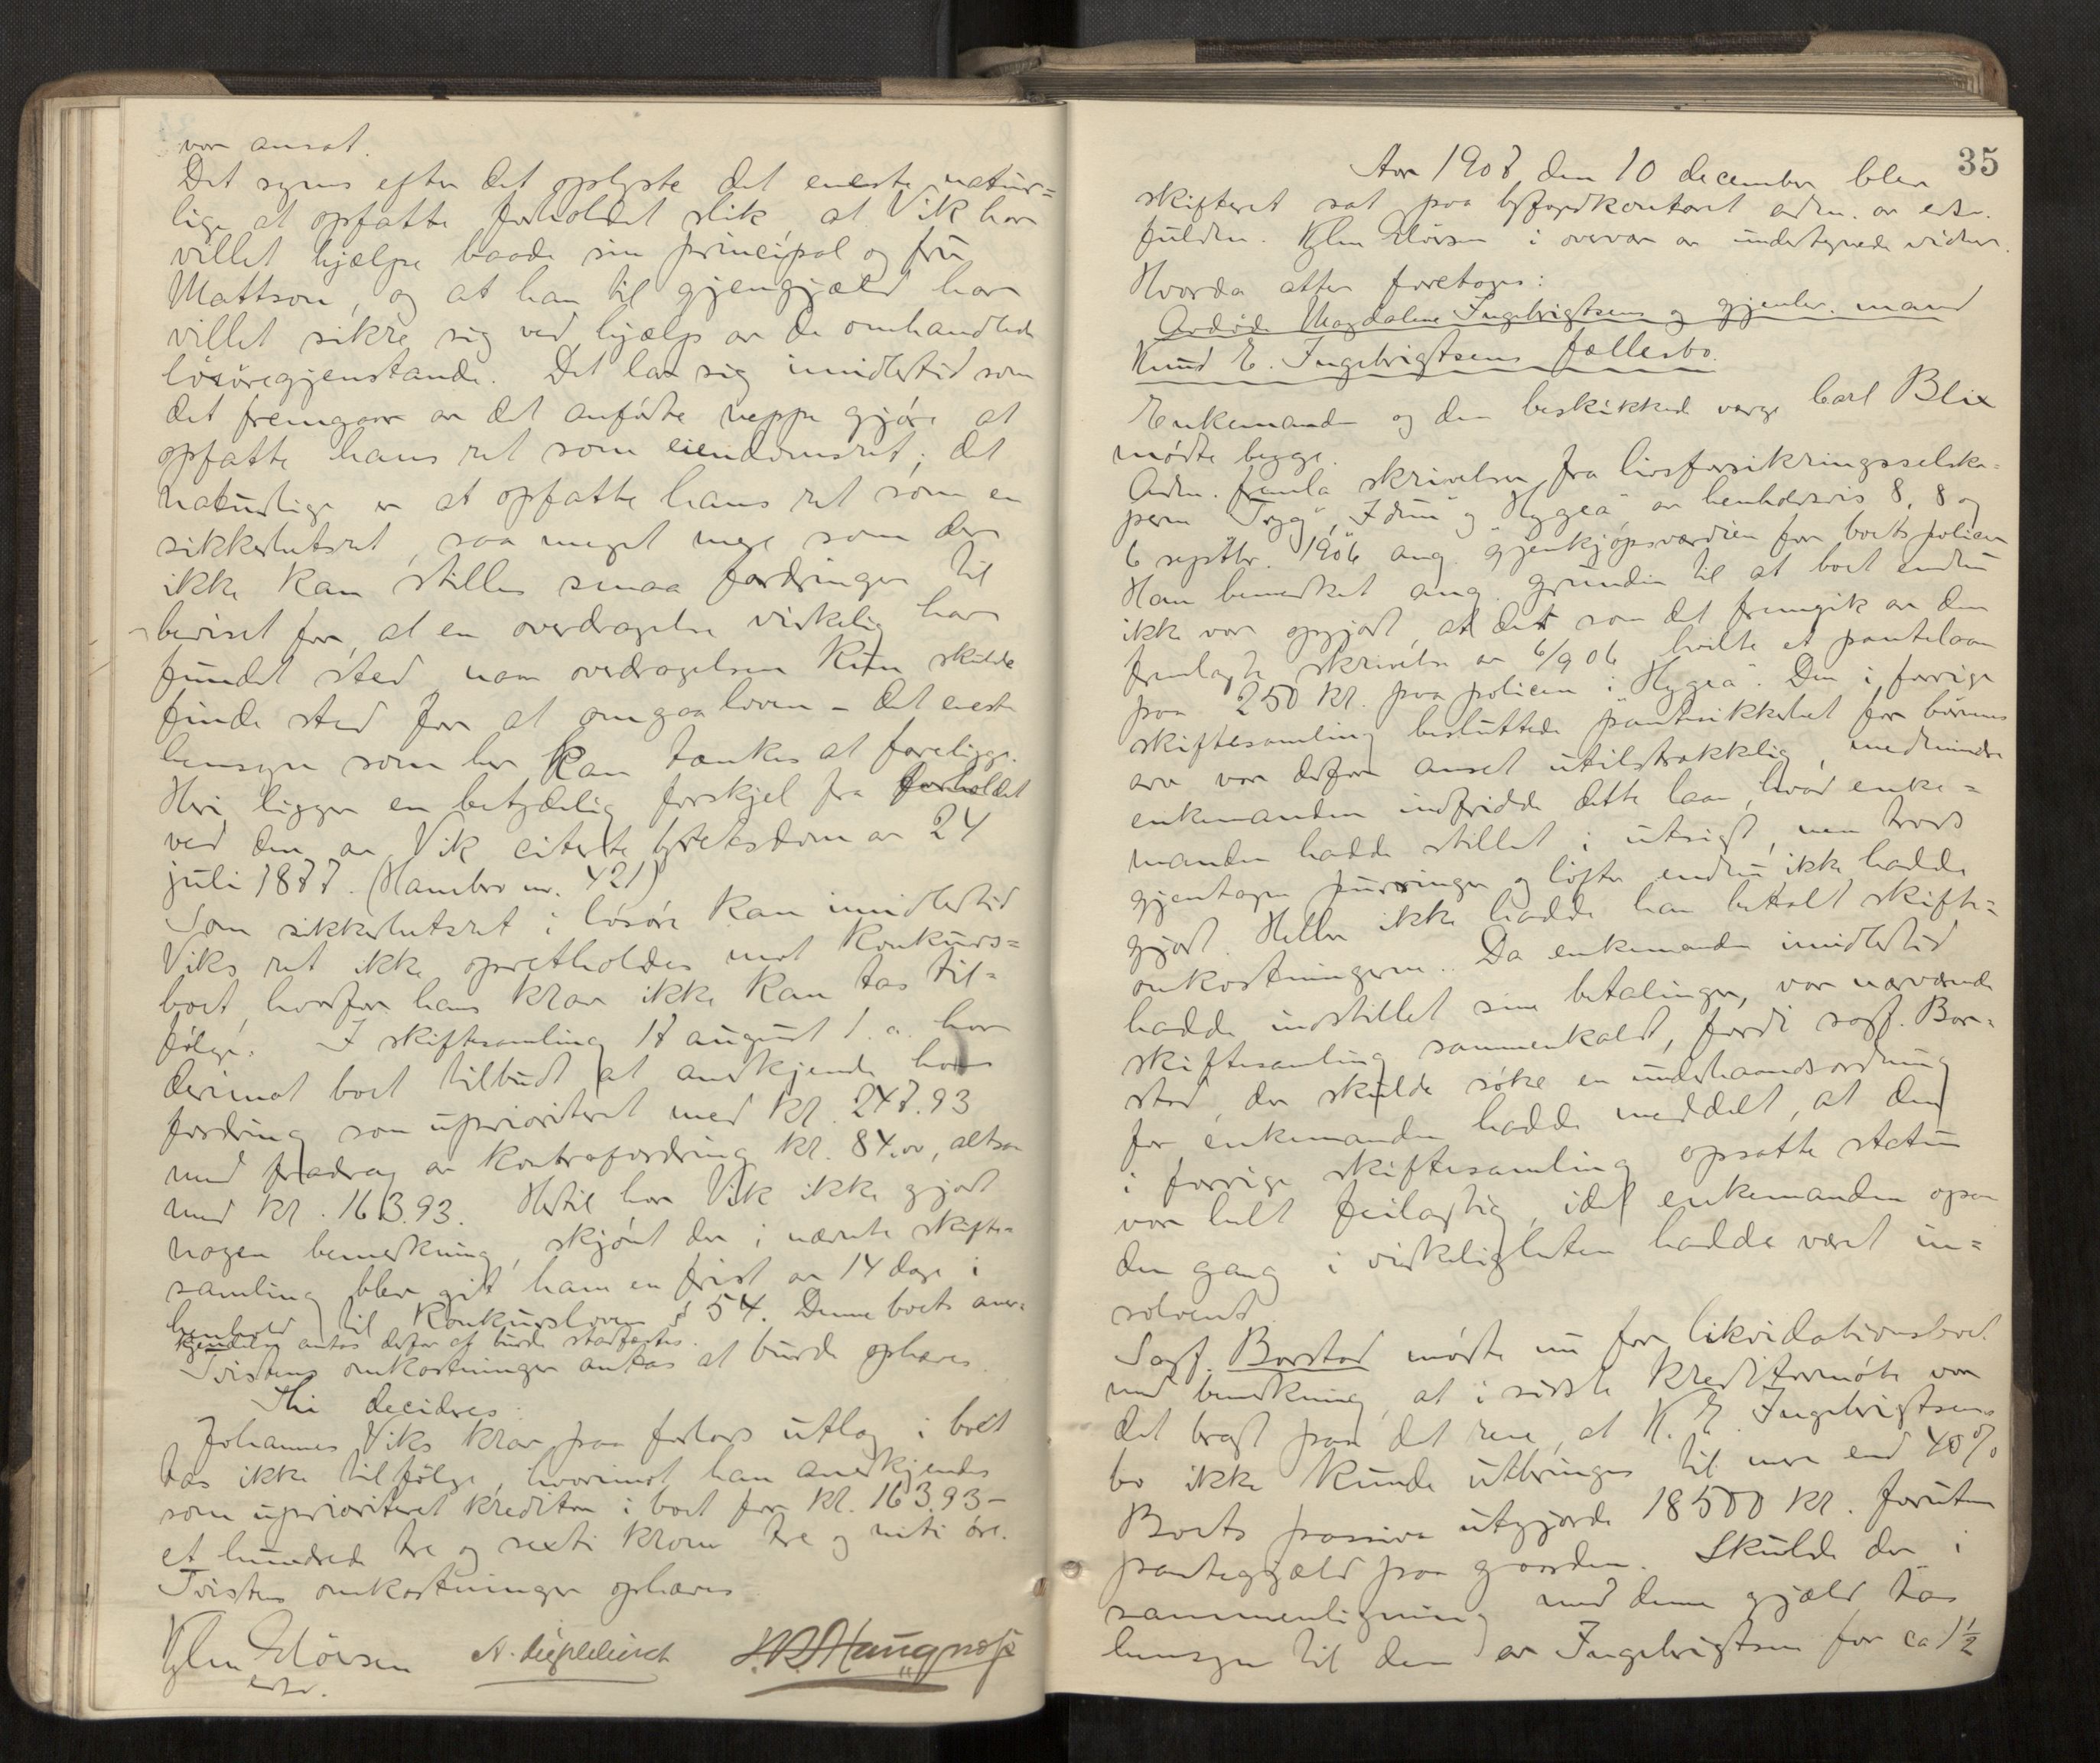 var ansat.
Det synes efter det oplyste det eneste natur=
lige at opfatte forholdet slik at Vik har
villet hjælpe baade sin principal og fru
Mattson, og at han til gjengjæld har
villet sikre sig ved hjælp av de omhandlede
løsøregjenstande. Det lar sig imidlertid som
det fremgaar av det anførte neppe gjøre at
opfatte hans ret som eiendomsret; det
naturlige er at opfatte hans ret som en
sikkerhetsret, saa meget mere som der
ikke kan stilles smaa fordringer til
beviset for, at en overdragelse virkelig har
fundet sted naar overdragelsen kun skulde
finde sted for at omgaa loven - det eneste
hensyn som her kan tænkes at foreligge.
Heri ligger en betydelig forskjel fra forholdet
ved den av Vik citerte byretsdom av 24
juli 1877. (Hambro nr. 421)
Som sikkerhetsret i løsøre kan imidlertid
Viks ret ikke opretholdes mot konkurs=
boet, hvorfor hans krav ikke kan tas til=
følge. I skiftesamling 17 august l. a. har
derimot boet tilbudt at anerkjende hans
fordring som uprioritert med kr. 247.93
med fradrag av kontrafordring kr. 84.00, altsaa
med kr. 163.93. Hertil har Vik ikke gjort
nogen bemerkning, skjønt der i nævnte skifte=
samling blev gitt ham en frist av 14 dage i
henhold til konkursloven § 54. Denne boets aner=
kjendelse antas derfor at burde stadfæstes.
Tvistens omkostninger antas at burde ophæves.
Thi decideres:
Johannes Viks krav paa forlods utlæg i boet
tas ikke tilfølge, hvorimot han anerkjendes
som uprioriteret kreditor i boet for kr. 163.93 -
et hundrede tre og sexti kroner tre og niti øre.
Tvistens omkostninger ophæves
35
Aar 1907 den 10 december blev
skifteret sat paa byfogdkontoret adm. av edsv.
fuldm. i overvær av undertegnede vidner.
Hvorda atter foretoges:
Avdøde Magdalene Ingebrigtsens og gjenlev. mand
Knud E. Ingebrigtsens fællesbo.
Enkemanden og den beskikkede verge Carl Blix
mødte begge.
Adm. fremla skrivelser fra livsforsikringsselska=
perne "Tryg", "Idun" og "Hygea" av henholdsvis 8, 8 og
6 septbr. 1906 ang. gjenkjøpsværdien for boets policer
Han bemerket ang. grunden til at boet endnu
ikke var opgjort, at det som det fremgik av den
fremlagte skrivelse av 6/9 06 hvilte et pantelaan
paa 250 kr. paa policen i "Hygea". Den i forrige
skiftesamling besluttede pantesikkerhet for barnets
arv var derfor anset utilstrækkelig, medmindre
enkemanden indfridde dette laan, hvad enke=
manden hadde stillet i utsigt, men trods
gjentagne purringer og løfter endnu ikke hadde
gjort. Heller ikke hadde han betalt skifte=
omkostningerne. Da enkemanden imidlertid
hadde indstillet sine betalinger, var nærværende
skiftesamling sammenkaldt, fordi sagf. Bor=
stad, der skulde søke en underhaandsordning
for enkemanden hadde meddelt, at den
i forrige skiftesamling opsatte status
var helt feilagtig, idet enkemanden ogsaa
den gang i virkeligheten hadde været in=
solvent.
Sagf. Borstad mødte nu for likvidationsboet
med bemerkning, at i sidste kreditormøte var
det bragt paa det rene, at K. E. Ingebrigtsens
bo ikke kunde utbringes til mere end 40%
Boets passiva utgjorde 18500 kr. foruten
pantegjæld paa gaarden. Skulde der i
sammenligning med denne gjæld tas
hensyn til den av Ingebrigtsen for ca 1½